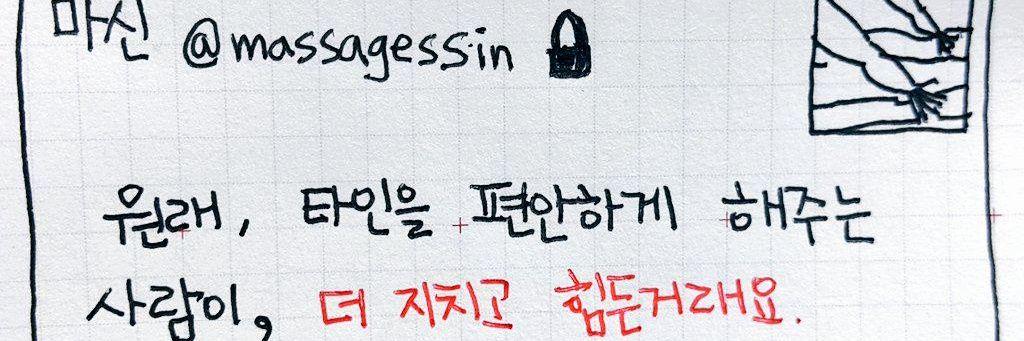 마신 @massagess.in
원래, 타인을 편안하게 해주는
사람이, 더 지치고 힘든거래요.